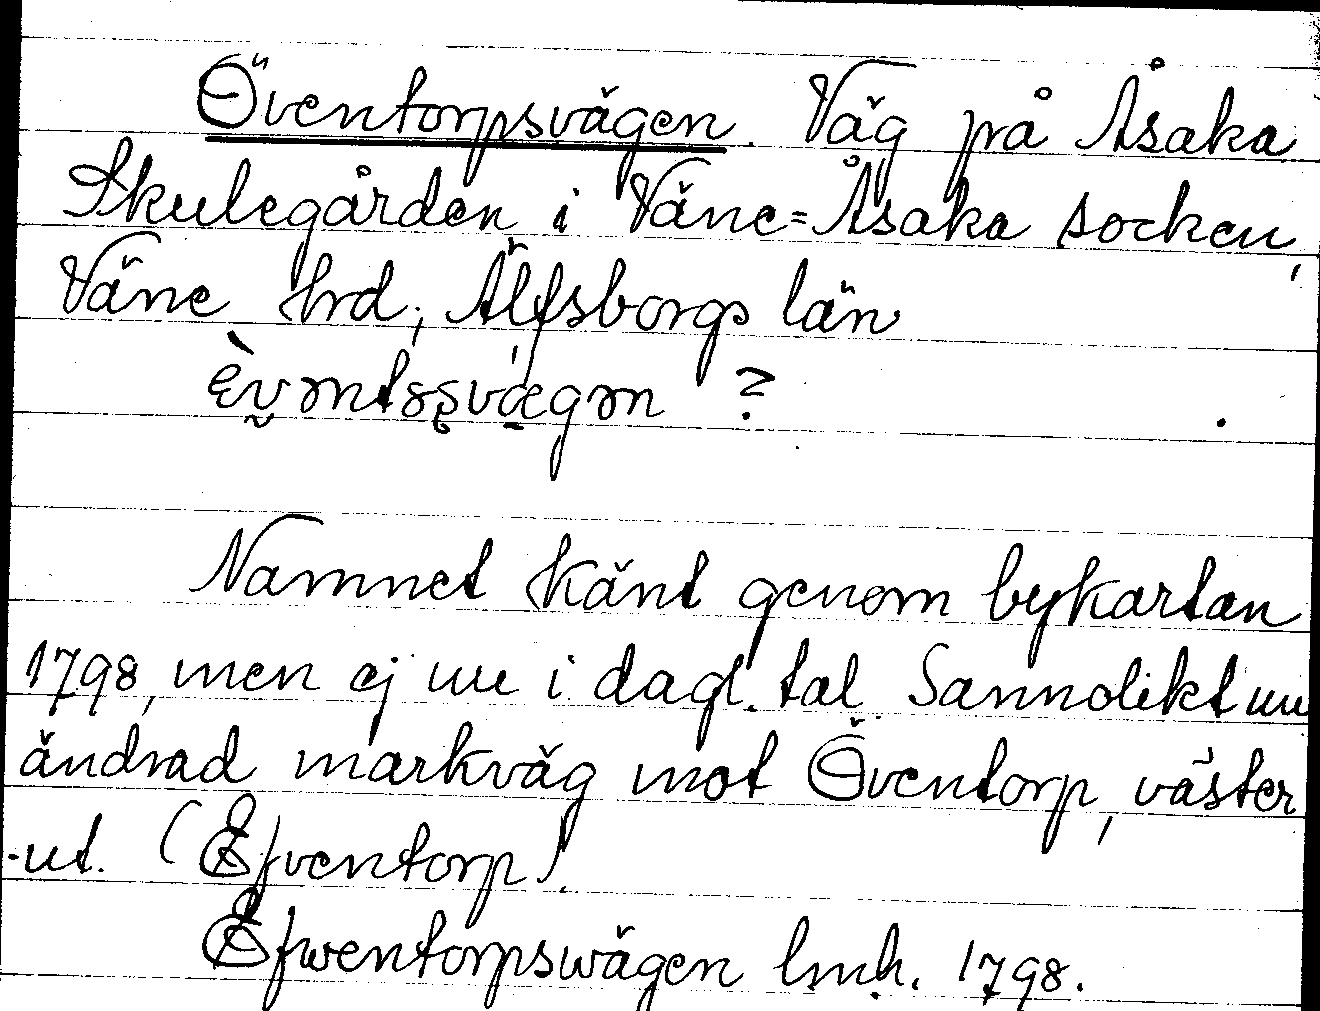 Öventorpsvägen. Väg på Åsaka
Skulegården i Väne=Åsaka socken,
Väne hrd, Älfsborgs län
?
Namnet känt genom bykartan
1798, men ej nu i dagl. tal. Sannolikt nu
ändrad markväg mot Öventorp, väster
-ut. (Efventorp).
Efwentorpswägen lmh. 1798.